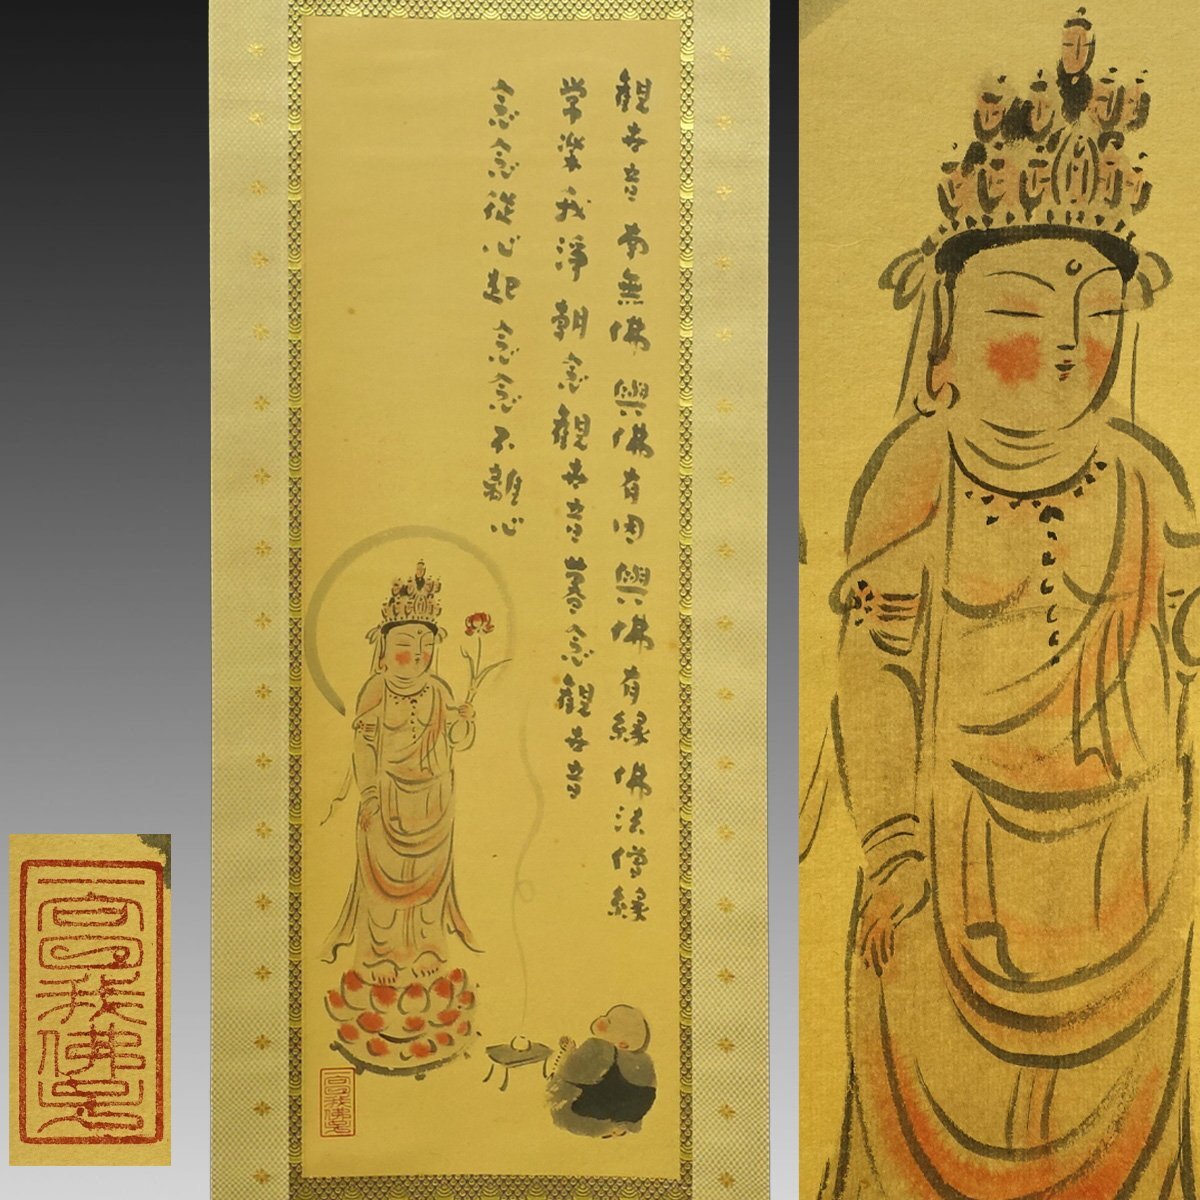 觀世音 南無佛 與佛有因 與佛有緣 佛法僧緣
常楽我淨 朝念觀世音 暮念觀世音
念念從心起 念念不離心